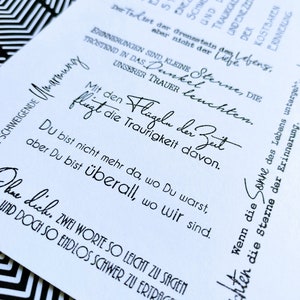 Der Tod ist der Grenzstein des Lebens,
aber nicht der Liebe
Erinnerungen sind kleine Sterne, die
tröstend in das Dunkel
unserer Trauer leuchten.
Schweigende Umarmung
Mit den Flügeln der Zeit
fliegt die Traurigkeit davon.
Du bist nicht mehr da, wo Du warst,
aber Du bist überall, wo wir sind.
Ohne dich, zwei Worte so leicht zu sagen
und doch so endlos schwer zu ertragen
Wenn die Sonne des Lebens unterge
die Sterne der Erinnerung.
kostbaren
Erinnerung